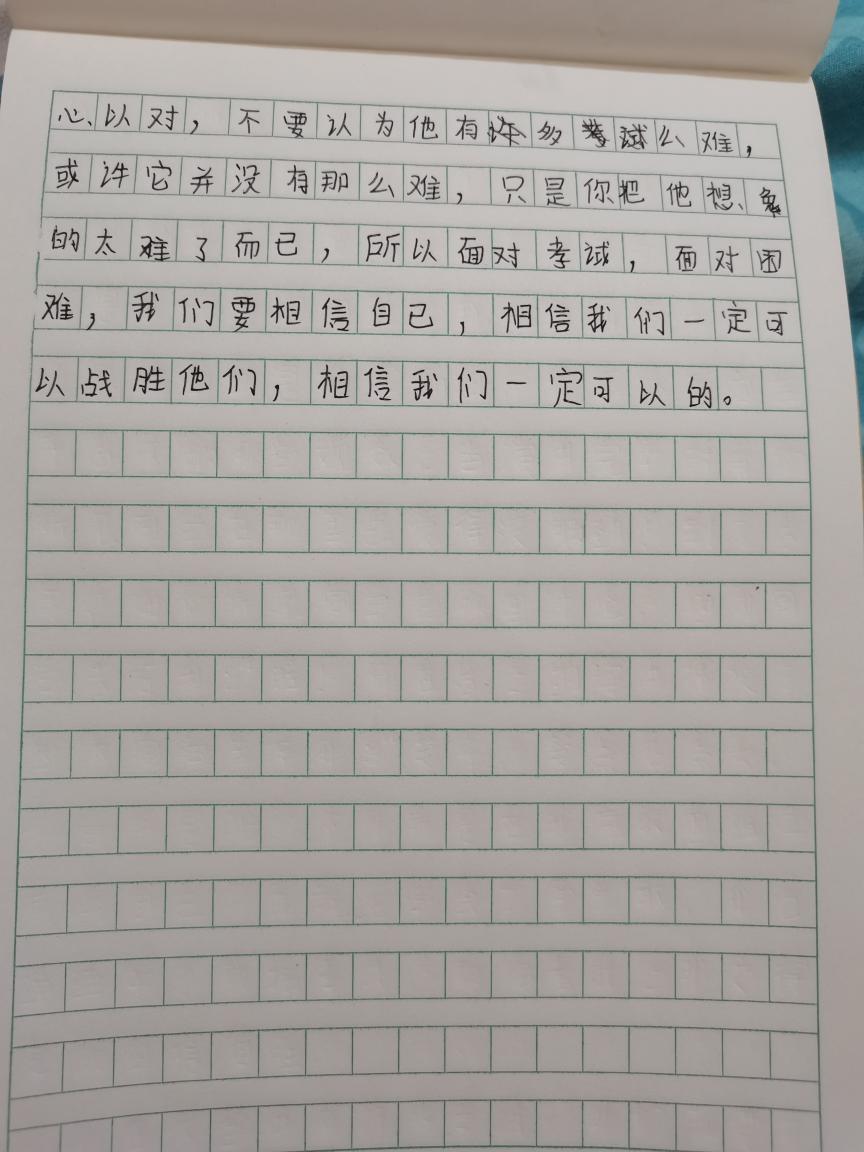 心以对，不要认为他有许多考试么难，
或许它并没有那么难，只是你把他想象
的太难了而已，所以面对考试，面对困
难，我们要相信自己，相信我们一定可
以战胜他们，相信我们一定可以的。